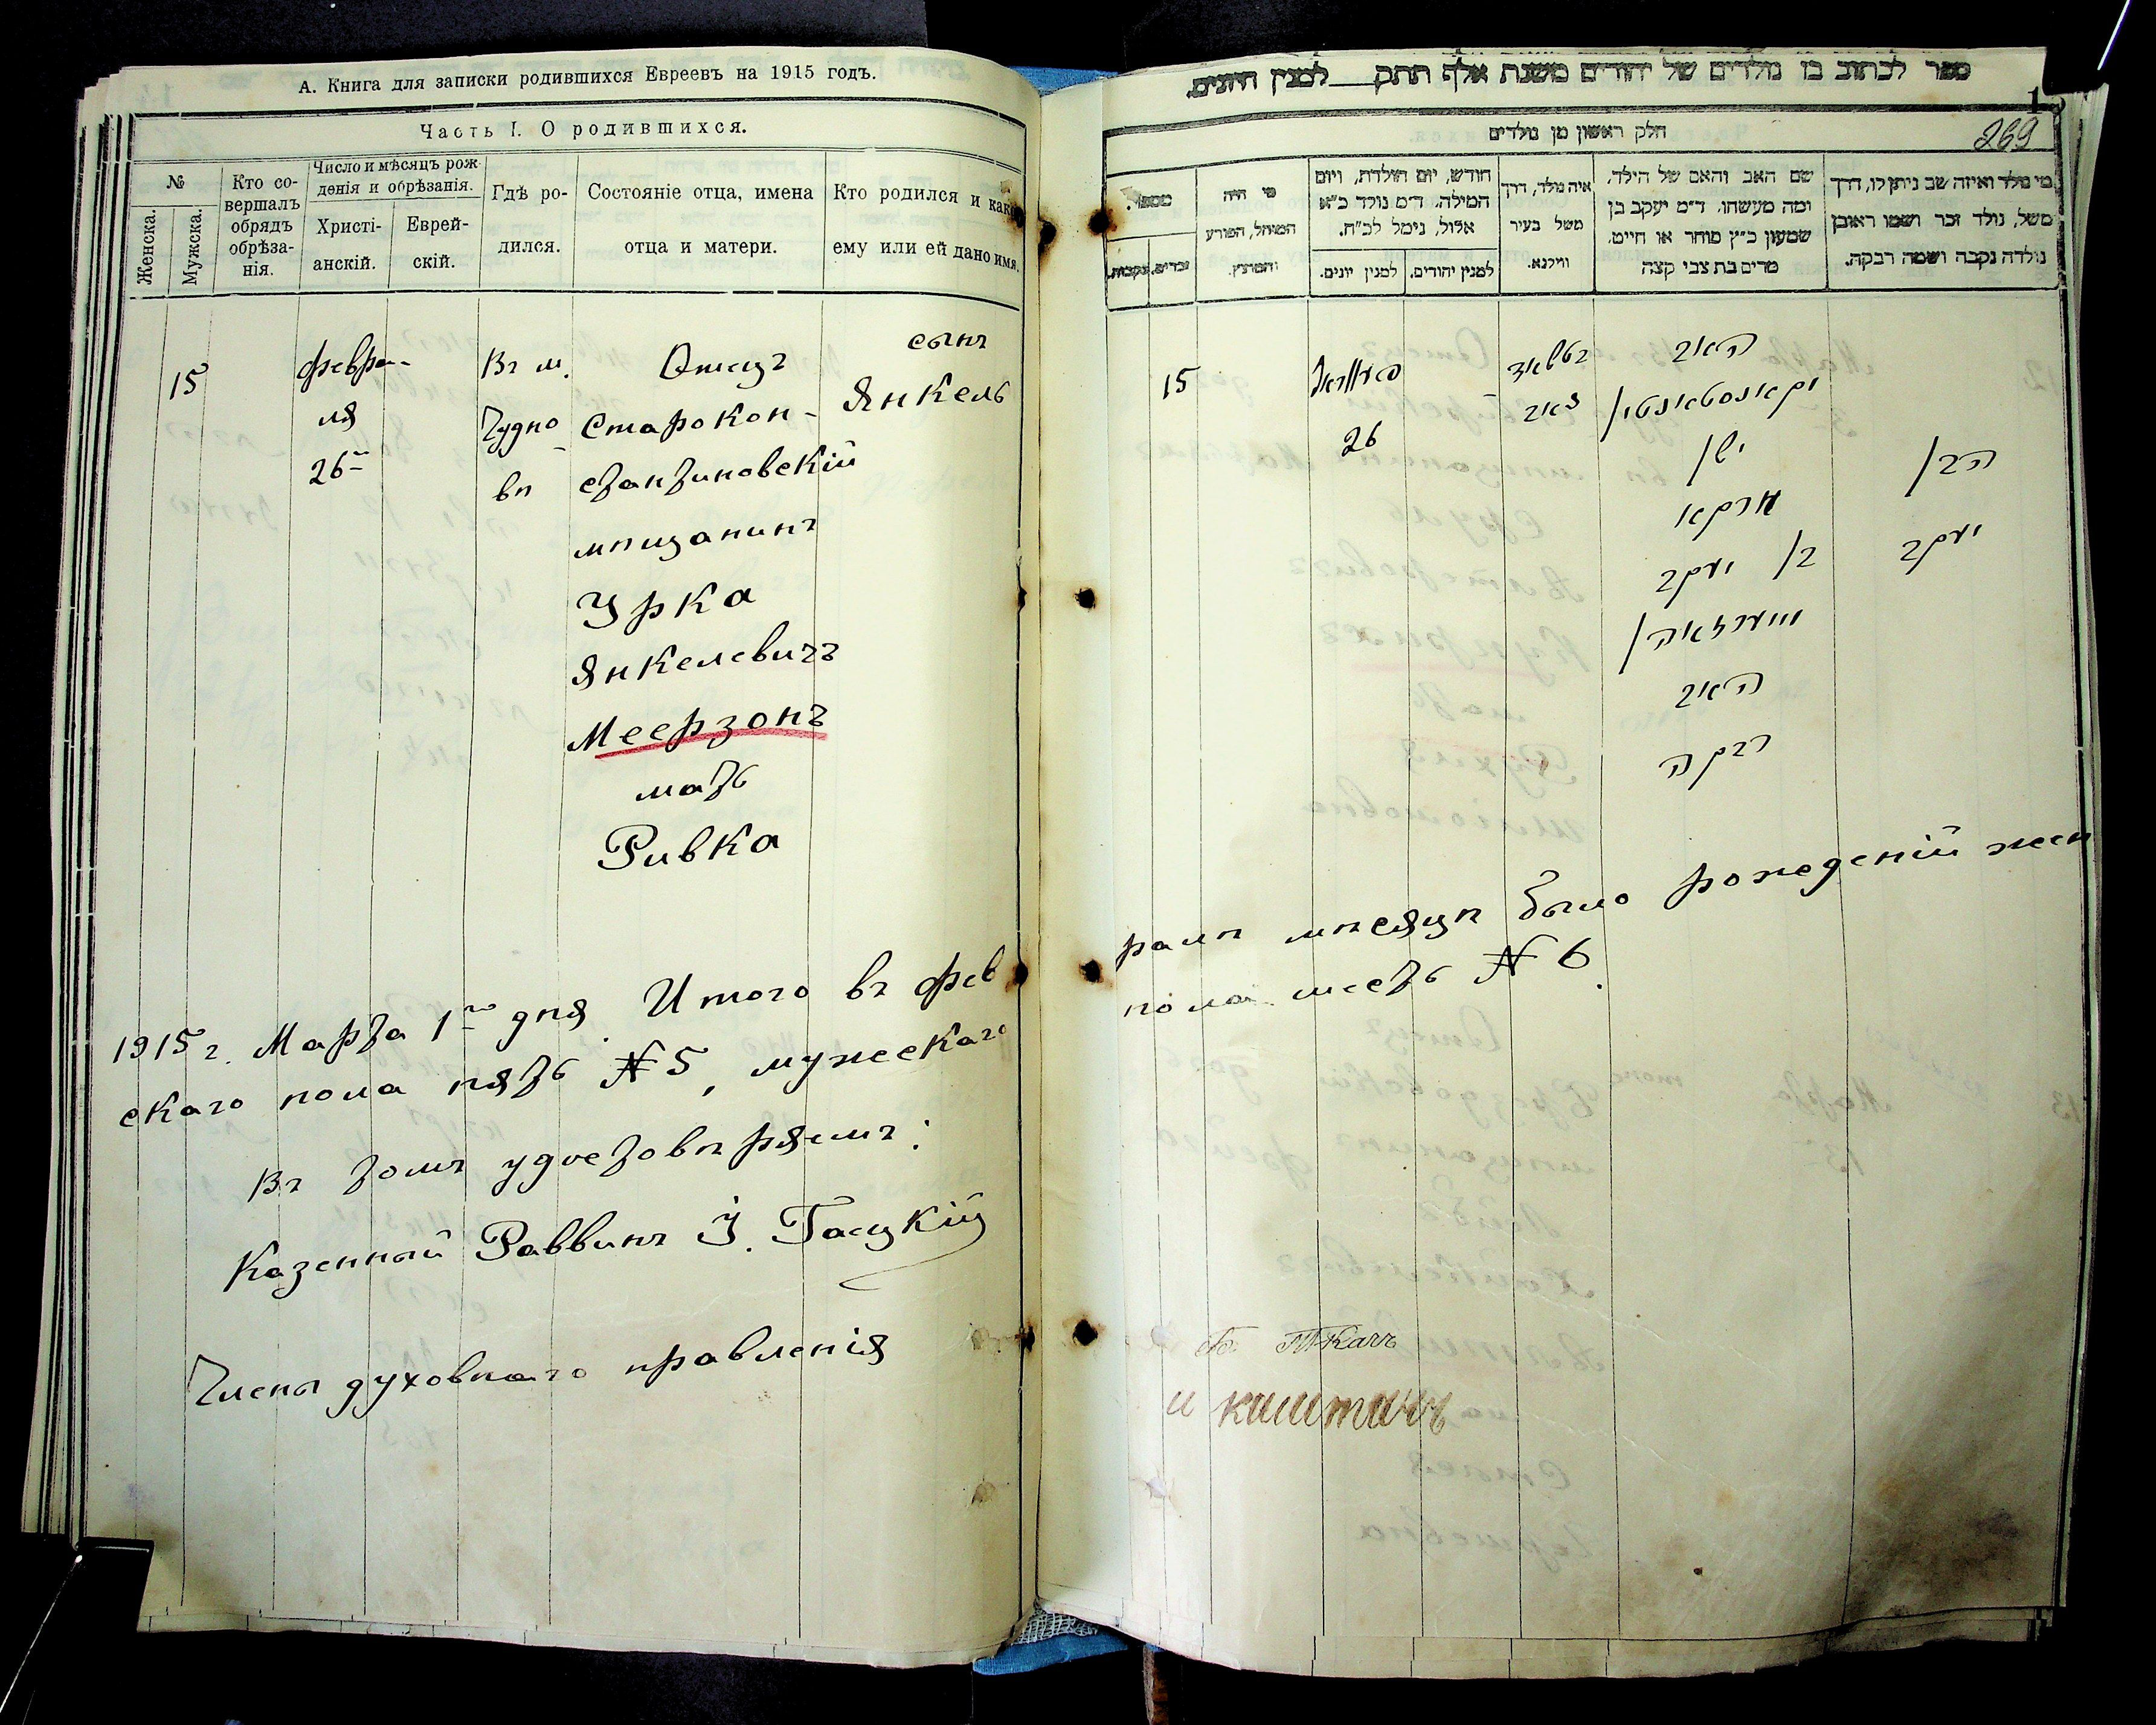 А. Книга для записки родившихся Евреевъ на 1915 годъ.
Часть I. О родившихся.
№
Женска.
Мужска.
Кто со-
вершалъ
обрядъ
обрѣза-
нія.
Число и мѣсяцъ рож
денія и обрѣзанія.
Христі-
анскій.
Еврей-
скій.
Гдѣ ро-
дился.
Состояніе отца, имена
отца и матери.
Кто родился и како
ему или ей дано имя.
15
февра-
ля
26го
Въ м.
Чудно
вѣ
Отецъ
Старокон-
стантиновскій
мѣщанинъ
Урка
Янкелевичъ
Меерзонъ
мать
Ривка
сынъ
Янкель
1915 г. Марта 1го дня. Итого въ фев
скаго пола пять № 5, мужескаго
Въ томъ удостовѣряемъ:
Казенный Раввинъ
Члены духовнаго правленія
ספר לכתוב בו נולדים של יהודים משנת אלף תתק למנין היונים.
269
חלק ראשון מן נולדים
מספר.
זכרים.
נקבות.
מי היה
המוהל, הפורע
והמוצץ.
חודש, יום הולדת, ויום
המילה. ד״מ נולד כ״א
אלול, נימל לכ״ח.
למנין יונים.
למנין יהודים.
איה נולד, דרך
משל בעיר
ווילנא.
שם האב והאם של הילד,
ומה מעשהו. ד״מ יעקב בן
שמעון כ״ץ סוחר או חייט.
מרים בת צבי קצה
מי נולד ואיזה שב ניתן לו, דרך
משל, נולד זכר ושמו ראובן
נולדה נקבה ושמה רבקה.
15
26
האב
בן יעקב
רבקה
הבן
יעקב
ралѣ мѣсяцѣ было рожденій жен
пола шесть № 6.